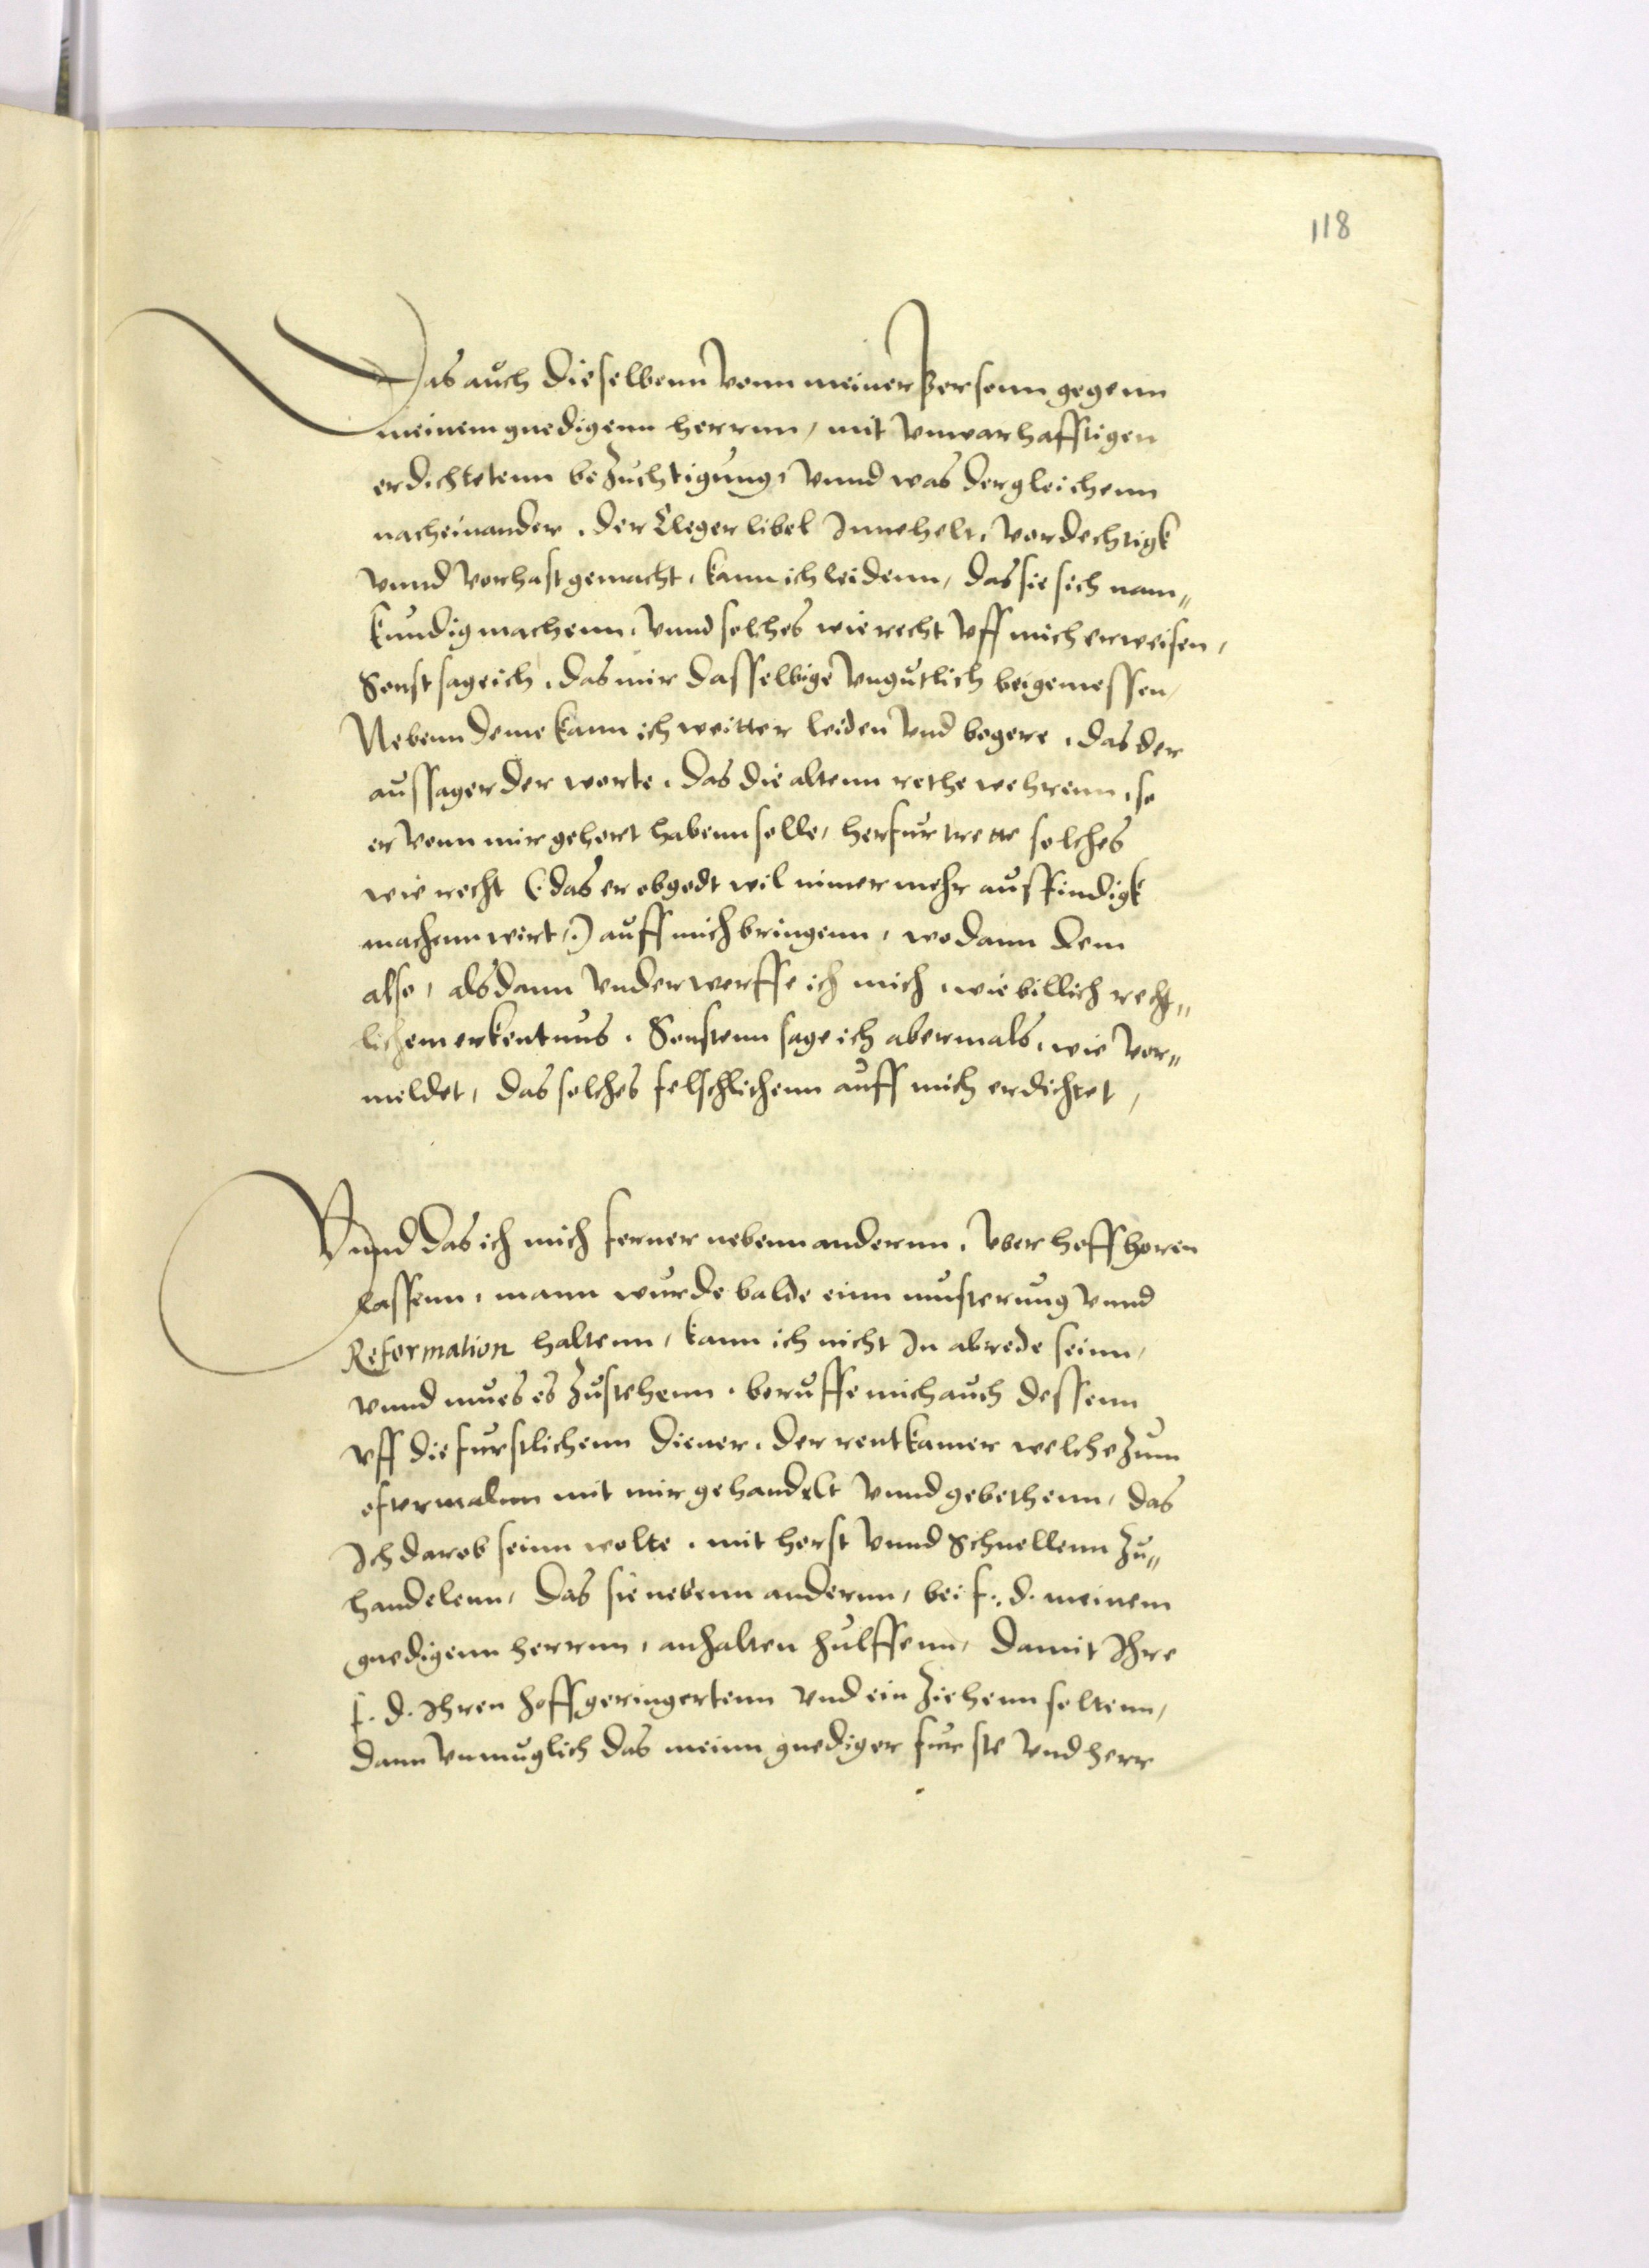 118
Das auch dieselbenn vonn meiner Persona gegenn
meinem gnedigenn herrnn / mit vnwarhafftigen
erdichtetenn bezuchtigung, vnnd was dergleichenn
nacheinander. der Cleger libel Innehelt, vordechtigk
vnnd vorhast gemacht, kann ich leidenn, das sie sich nam„
kundig machenn, vnnd solches wie recht vff mich erweisen,
Sonst sage ich, das mir dasselbige vngutlich beigemessen,
Nebenn deme kann ich weitter leiden vnd begere, das der
aussager der worte, das die altenn rethe wehrenn, so
er vonn mir gehort habenn solle, herfur trette solches
wie recht (: das er obgodt wil nimermehr ausfindigk
machenn wirt /:) auff mich bringenn, wo dann dem
also, alsdann vnderwerffe ich mich, wie billich recht„
lichem erkentnus. Sonstenn sage ich abermals, wie vor„
meldet, das solches felschlichenn auff mich erdichtet,
Vnnd das ich mich ferner nebenn andernn, vber hoff horen
lassenn, mann wurde balde einn musterung vnnd
Reformation haltenn, kann ich nicht In abrede seinn,
vnnd mues es zustehenn, beruffe mich auch dessenn
vff die furstlichenn diener, der rentkamer welche zum
oftermalnn mit mir gehandelt vnnd gebethenn, das
Ich darob seinn wolte, mit horst vnnd Schnellenn zu„
handelenn, das sie nebenn andernn, bei f. d. meinem
gnedigenn herrnn, anhalten hulffenn, damit Ihre
f. d. Ihren hoff geringertenn vnd ein ziehenn soltenn,
dann vnmuglich das meinn gnediger furste vnd herr